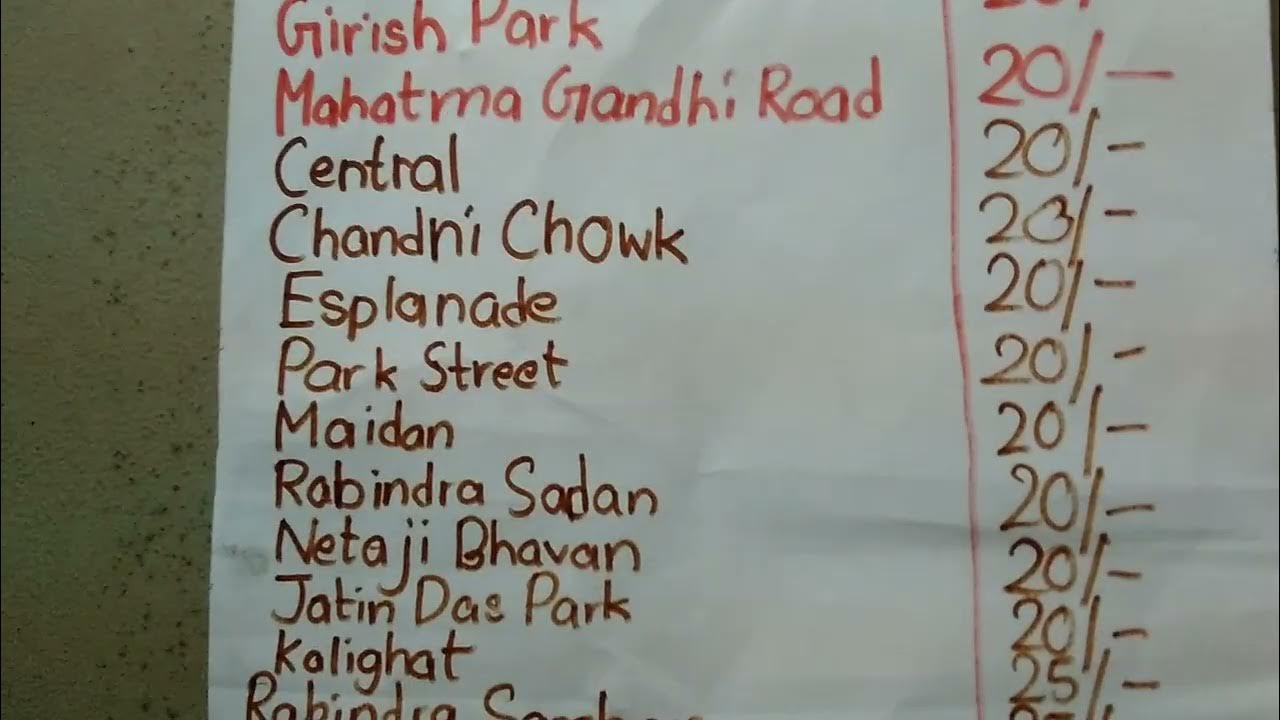 Girish Park
Mahatma Gandhi Road 20/-
Central 20/-
Chandni Chowk 20/-
Esplanade 20/-
Park Street 20/-
Maidan 20/-
Rabindra Sadan 20/-
Netaji Bhavan 20/-
Jatin Das Park 20/-
Kalighat 25/-
Rabindra